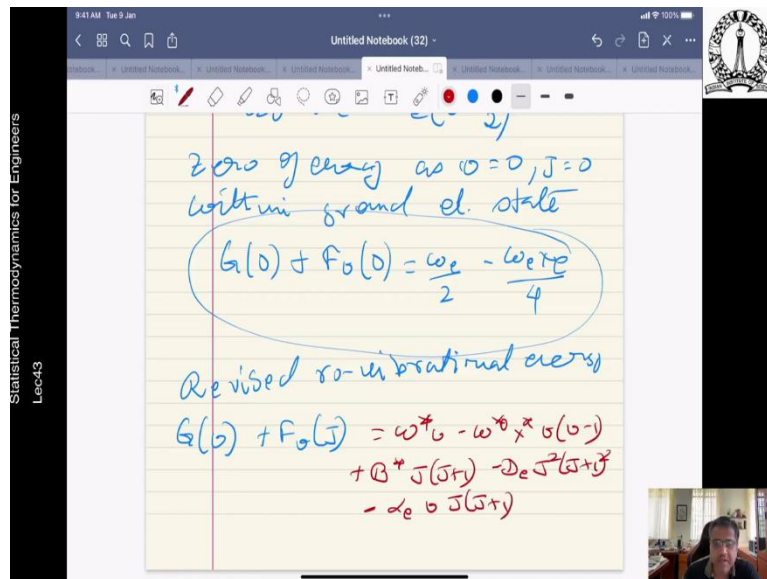 9:41 AM Tue 9 Jan
100%
Untitled Notebook (32)
Untitled Notebook...
Untitled Notebook...
Untitled Notebook...
Untitled Noteb...
Untitled Notebook...
Untitled Notebook...
Untitled Notebook...
Statistical Thermodynamics for Engineers
Lec43
Zero of energy as υ=0, J=0
within ground el. state
G(0) + F₀(0) = ωe/2 - ωexe/4
Revised ro-vibrational energy
G(υ) + Fυ(J) = ω*υ - ω*x*υ(υ-1)
+ B* J(J+1) - De J²(J+1)²
- αe υ J(J+1)